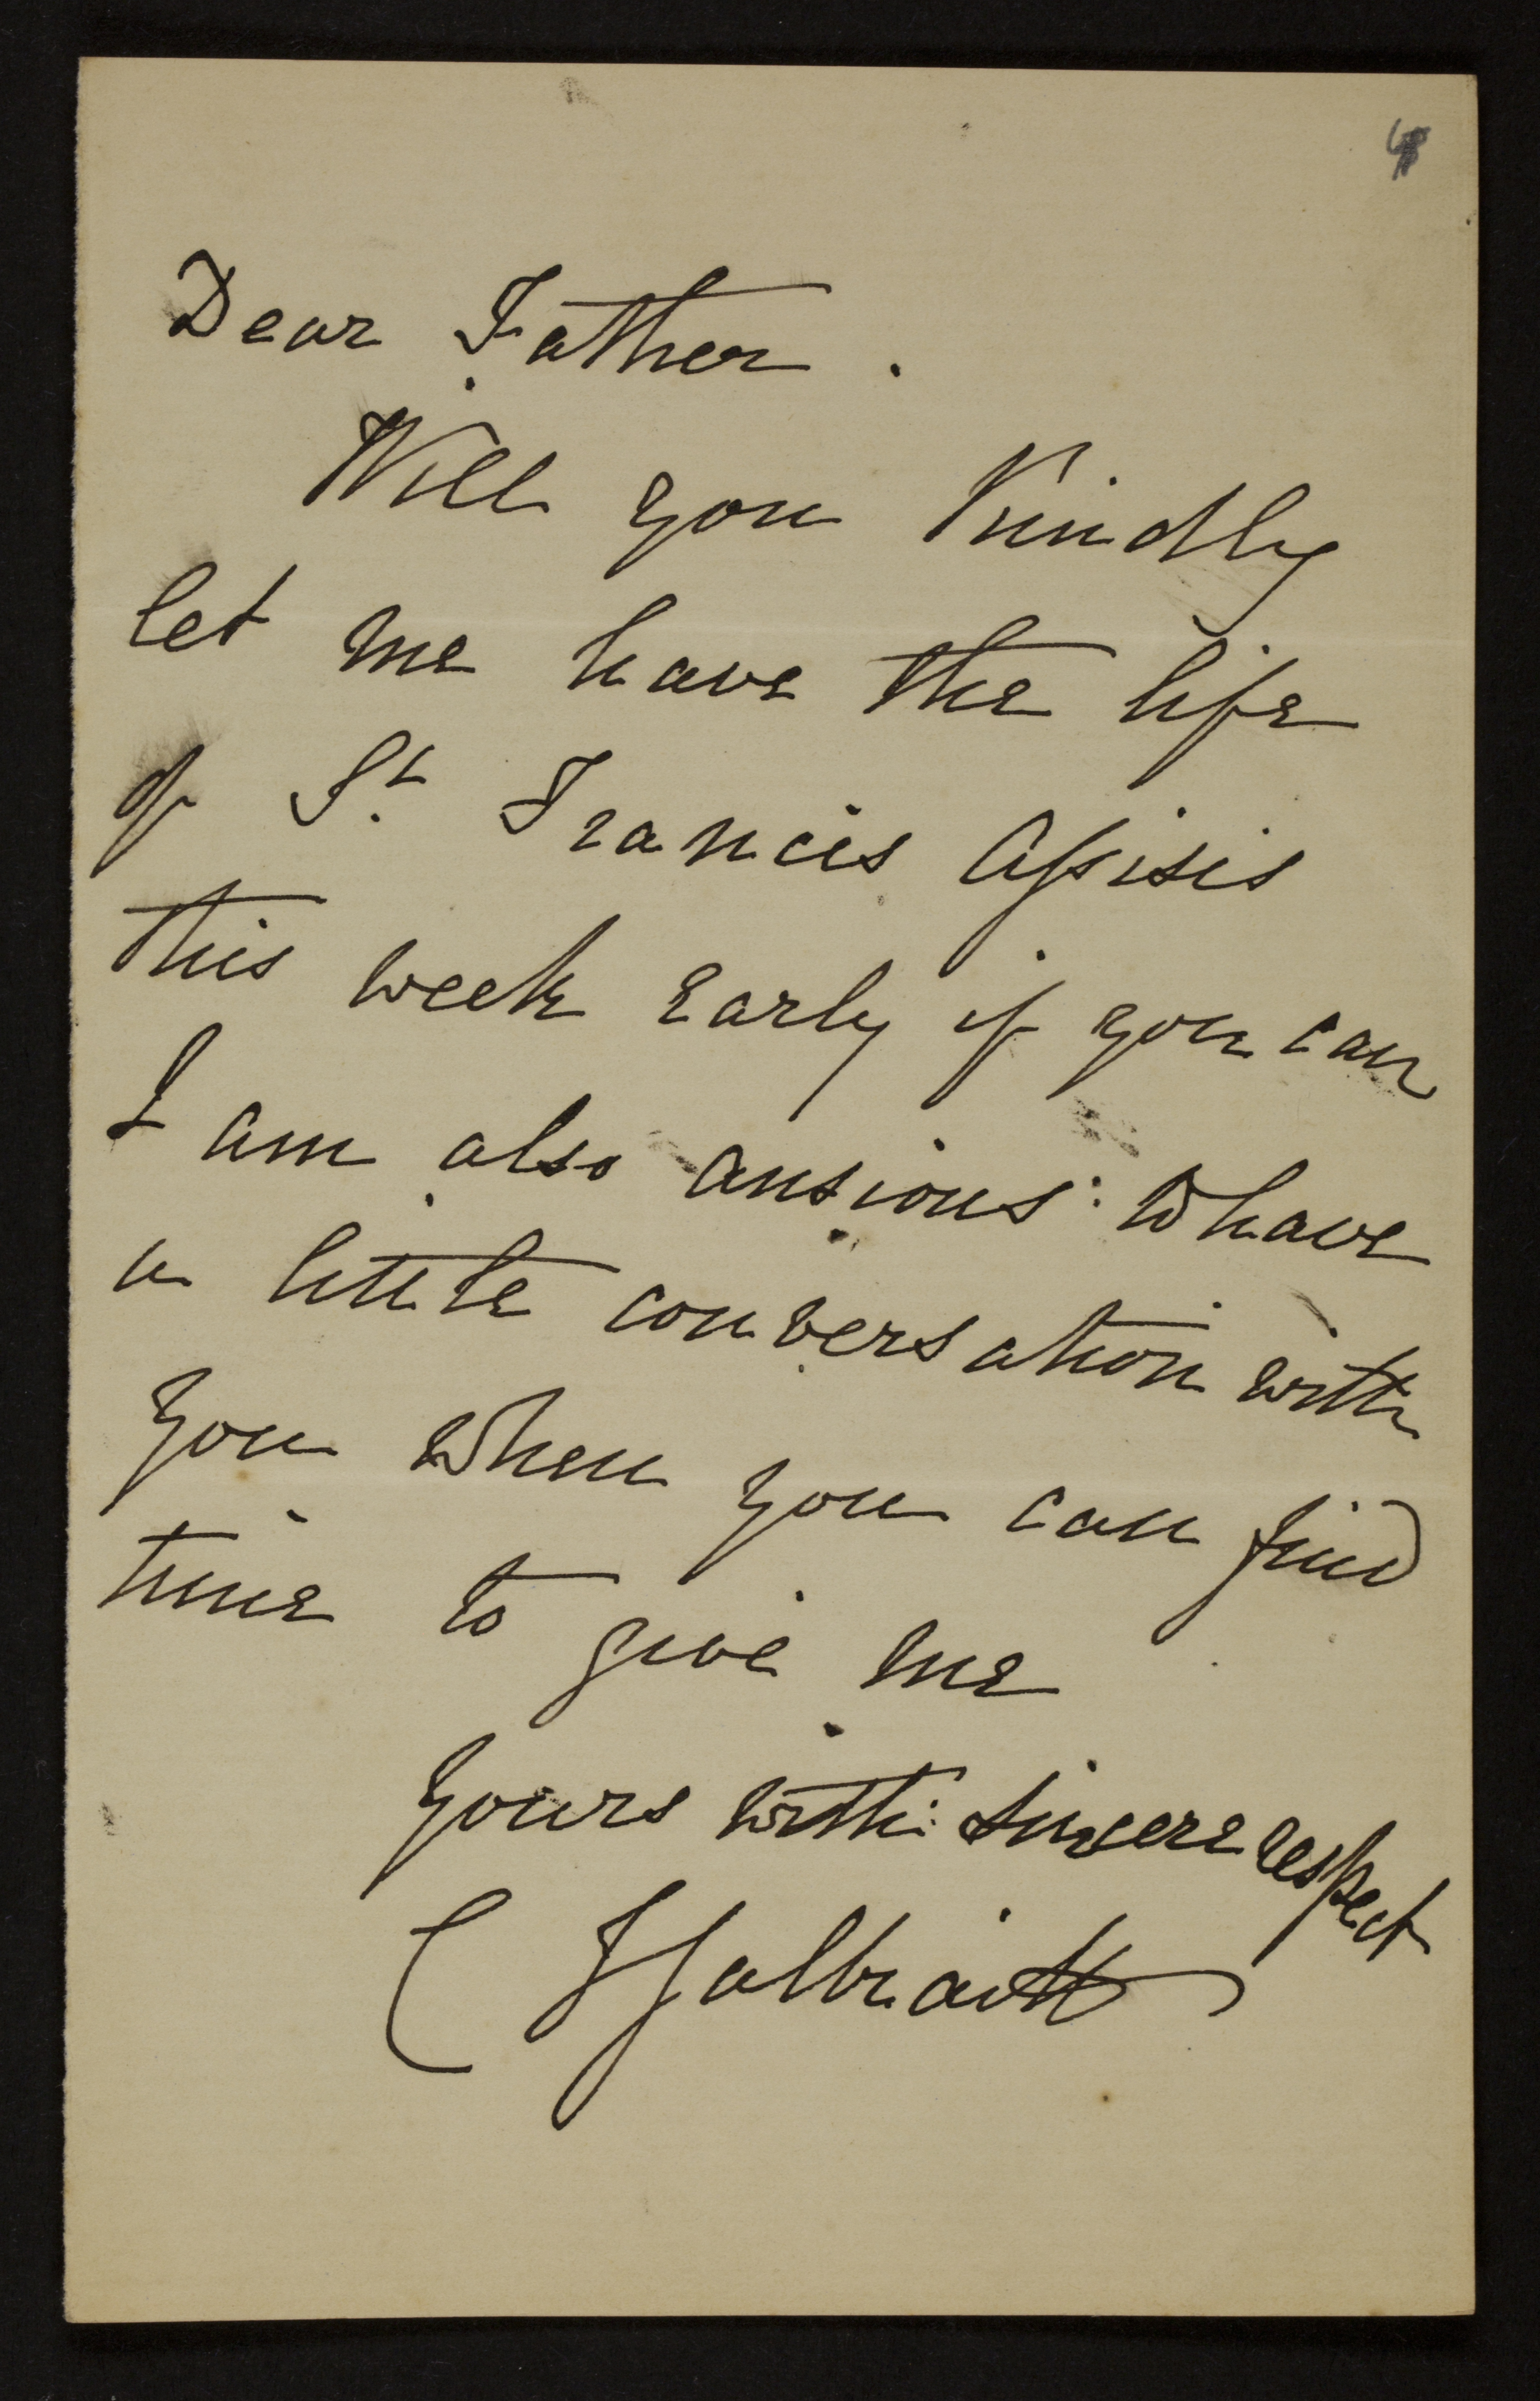 Dear Father.
Will you kindly
let me have the life
of St. Francis Assisis
this week early if you can
I am also anxious to have
a little conversation with
you when you can find
time to give me
Yours with sincere respect
C Galbraith